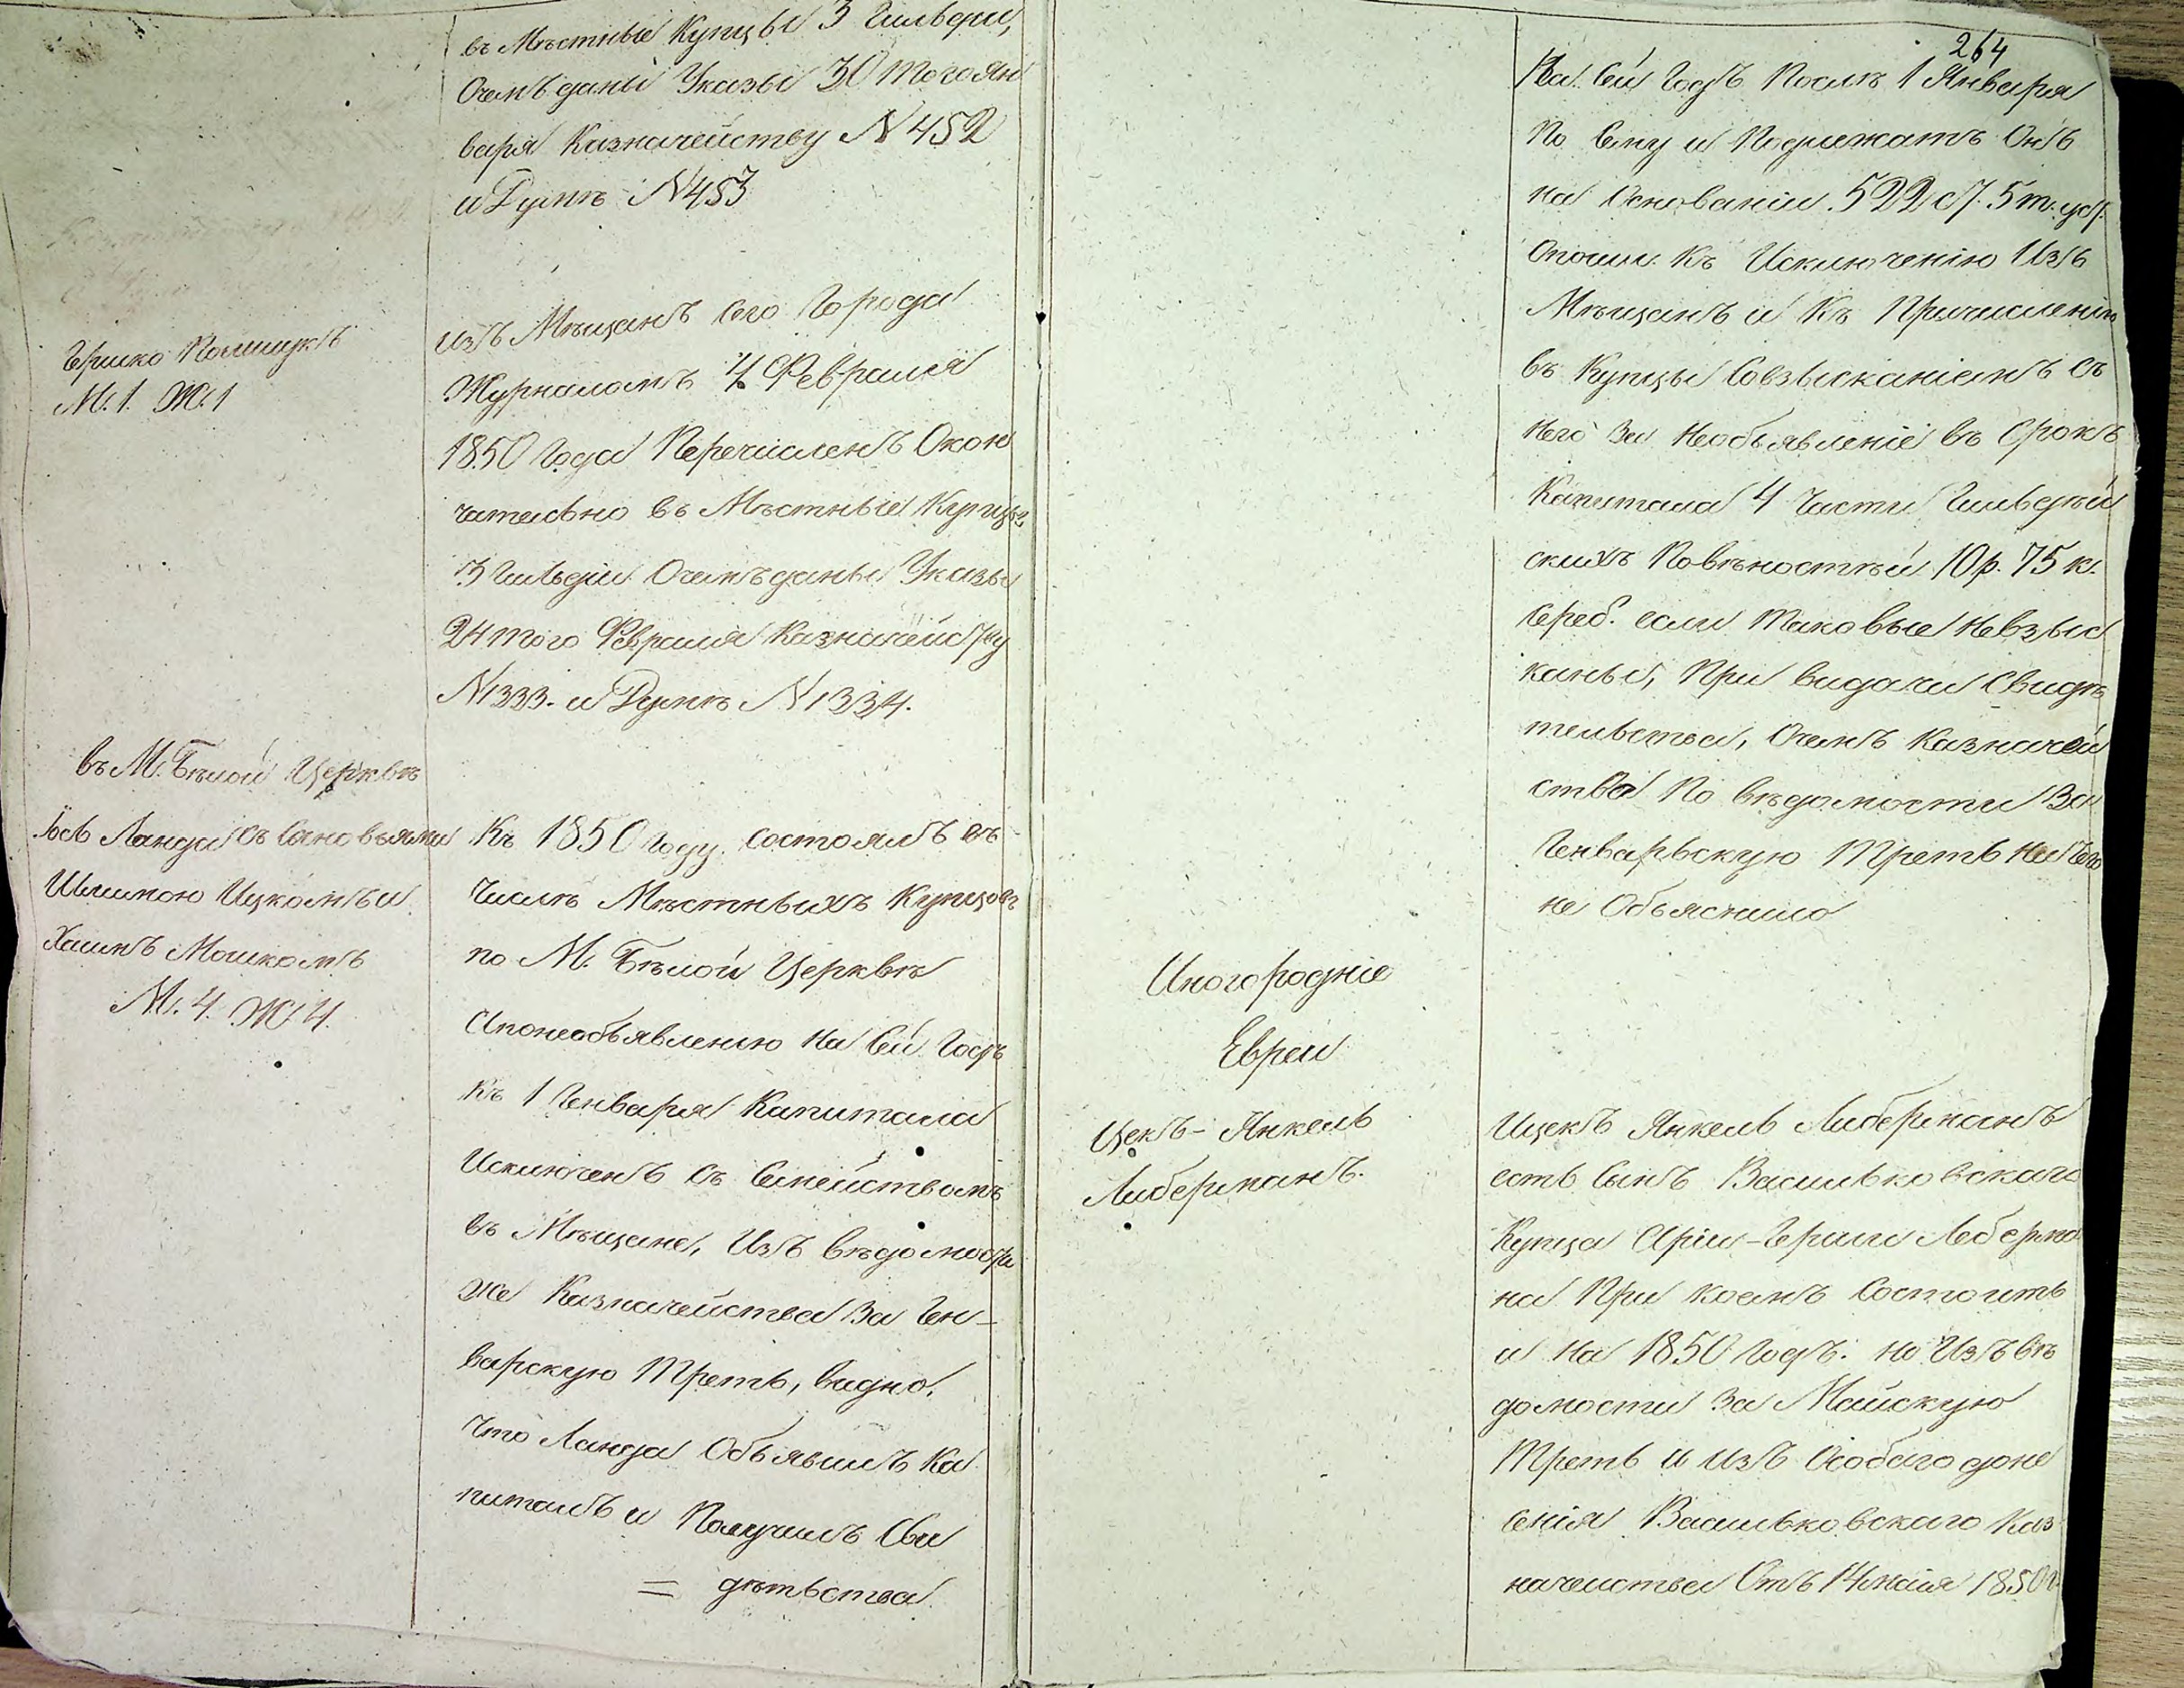 въ Мѣстные Купцы 3 Гильдіи,
Очемъ даны Указы 30 того Ян
варя Казначейству N 452
и Думѣ N 453
Гершко Полищукъ
М. 1. Ж. 1
изъ Мѣщанъ Сего Города
Журналомъ 4 Февраля
1850 Года Перечисленъ Окон
чательно въ Мѣстные Купцы
3 Гильдіи Очемъ даны Указы
24 того Февраля Казначейству
N 1333. и Думѣ N 1334.
въ М. Бѣлой Церквѣ
Іось Ланда съ Сыновьями
Шлимою Ицкомъ и
Хаимъ Мошкомъ
М. 4. Ж. 4.
Къ 1850 Году состоялъ въ
Числѣ Мѣстныхъ Купцовъ
по М. Бѣлой Церквѣ
Ипонеобъявленію На Сей Годъ
Къ 1 Генваря Капитала
Исключенъ съ Семействомъ
въ Мѣщане, Изъ вѣдомости
же Казначейства За Ген-
варскую Треть, видно,
Что Ланда Объявилъ Ка
питалъ и Получилъ Сви
= дѣтьства
264
На Сей Годъ Послѣ 1 Января
По Сему и Подлежатъ Онъ
на Основаніи 522 ст. 5 т. уст.
Опошл. Къ Исключенію Изъ
Мѣщанъ и Къ Причисленію
въ Купцы Совзысканіемъ съ
Него За Необъявленіе въ Срокъ
Капитала 4 Части Гильдей
скихъ Повѣностѣй 10 р. 75 к.
Сереб. если Таковые Невзыс
каны, При видачи Свидѣ
тельства, Очемъ Казначей
ство По вѣдомости За
Генварьскую Треть Ничего
не Объяснило
Иногородніе
Евреи
Ицекъ-Янкель
Либерманъ.
Ицекъ Янкель Либерманъ
есть Сынъ Васильковскаго
Купца Арія-Герши Леберма
на При коемъ Состоитъ
и На 1850 Годъ. но Изъ вѣ
домости За Майскую
Треть и изъ Особаго доне
сенія Васильковскаго Каз
начейства Отъ 14 мая 1850 г.